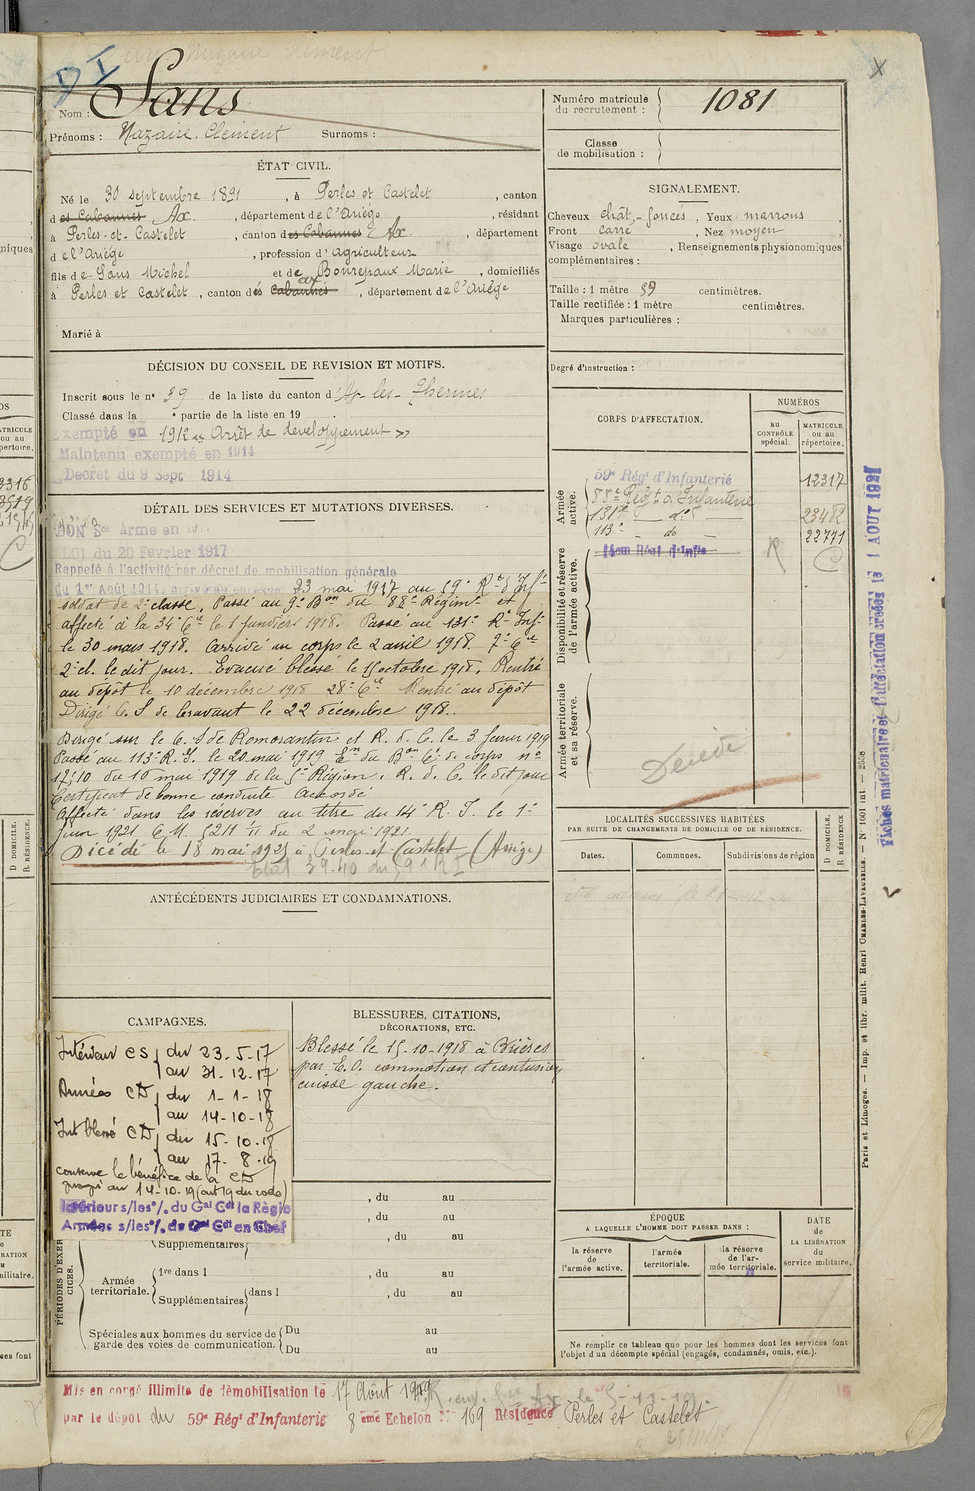 D I
Nom : Sans
Prénoms : Nazaire. Clément Surnoms :
Numéro matricule du recrutement : 1081
Classe de mobilisation :
ÉTAT CIVIL.
Né le 30 septembre 1891, à Perles et Castelet, canton
des Cabannes Ax, département de l'Ariége, résidant
à Perles-et-Castelet, canton des Cabannes d'Ax, département
de l'Ariége, profession d'agriculteur
fils de Sans Michel et de Bonrepaux Marie, domiciliés
à Perles et Castelet, canton des Cabannes ax, département de l'Ariége
Marié à
SIGNALEMENT.
Cheveux chât-foncés, Yeux marrons
Front carré, Nez moyen
Visage ovale, Renseignements physionomiques
complémentaires :
Taille : 1 mètre 59 centimètres.
Taille rectifiée : 1 mètre centimètres.
Marques particulières :
Degré d'instruction :
DÉCISION DU CONSEIL DE REVISION ET MOTIFS.
Inscrit sous le n° 39 de la liste du canton d'Ax-les-Thermes
Classé dans la partie de la liste en 19 .
Exempté en 1912 « Arrêt de développement »
Maintenu exempté en 1914
Decret du 9 Sept 1914
DÉTAIL DES SERVICES ET MUTATIONS DIVERSES.
BON Sce Armé en
LOI du 20 Février 1917
Rappelé à l'activité par décret de mobilisation générale
du 1er Août 1914, 23 mai 1917 au 59e Rt d'Inf
soldat de 2e classe. Passé au 9e Bon du 88e Régimt et
affecté à la 34e Cie le 1 janvier 1918. Passé au 131e Rt Infie
le 30 mars 1918. Arrivé au corps le 2 avril 1918. 7e Cie
2e cl. le dit jour. Evacué blessé le 15 octobre 1918. Rentré
au dépôt le 10 décembre 1918 28e Cie Rentré au dépôt
Dirigé C. S de Gravant le 22 décembre 1918.
Dirigé sur le C. S de Romorantin et R. d. C. le 3 janvr 1919
Passé au 113e R. I. le 20 mai 1919 du Bon Cé de corps n°
12710 du 10 mai 1919 de la 5e Région. R. d. C. le dit jour
Certificat de bonne conduite Accordé
Affecté dans les réserves au titre du 14e R. I. le 1er
Juin 1921 C. M. 5211 II du 2 mai 1921.
Décédé le 18 mai 1925 à Perles-et-Castelet (Ariège)
CORPS D'AFFECTATION.
NUMÉROS
au CONTRÔLE spécial.
MATRICULE ou au répertoire.
Armée active.
59e Régt d'Infanterie 12317
88e Régt d'Infanterie
131e do 23482
113e do 22771
14em Régt d'Infie
R C
Disponibilité et réserve de l'armée active.
Armée territoriale et sa réserve.
Décédé
LOCALITÉS SUCCESSIVES HABITÉES
PAR SUITE DE CHANGEMENTS DE DOMICILE OU DE RÉSIDENCE.
Dates. Communes. Subdivisions de région
D DOMICILE.
R RÉSIDENCE
Fiches matriculaire et d'affectation créées le 1 AOUT 1921
Paris et Limoges. — Imp. et libr. milit. Henri CHARLES-LAVAUZELLE. — N° 1001 int. — 2568
ANTÉCÉDENTS JUDICIAIRES ET CONDAMNATIONS.
CAMPAGNES.
Intérieur CS du 23-5-17
au 31-12-17
Armées CD du 1-1-18
au 14-10-18
Int blessé CD du 15-10-18
au 17-8-19
conserve le bénéfice de la CD
jusqu'au 14-10-19 (art 19 du code)
Intérieur s/les o/. du Gal Cdt la Régio
Armées s/les o/. du Gal Cdt en Chef
BLESSURES, CITATIONS,
DÉCORATIONS, ETC.
Blessé le 15-10-1918 à Brières
par E. O. commotion et contusion
cuisse gauche.
, du au
, du au
PÉRIODES D'EXERCICES.
Supplémentaires , du au
Armée territoriale.
1re dans l , du au
Supplémentaires dans l , du au
Spéciales aux hommes du service de garde des voies de communication.
Du au
Du au
ÉPOQUE
A LAQUELLE L'HOMME DOIT PASSER DANS :
la réserve de l'armée active.
l'armée territoriale.
la réserve de l'armée territoriale.
DATE DE LA LIBÉRATION du service militaire.
Ne remplir ce tableau que pour les hommes dont les services font
l'objet d'un décompte spécial (engagés, condamnés, omis, etc.).
Mis en congé illimité de démobilisation le 17 Août 1919
par le dépôt du 59e Régt d'Infanterie 8 eme Echelon N° 169 Résidence Perles et Castelet